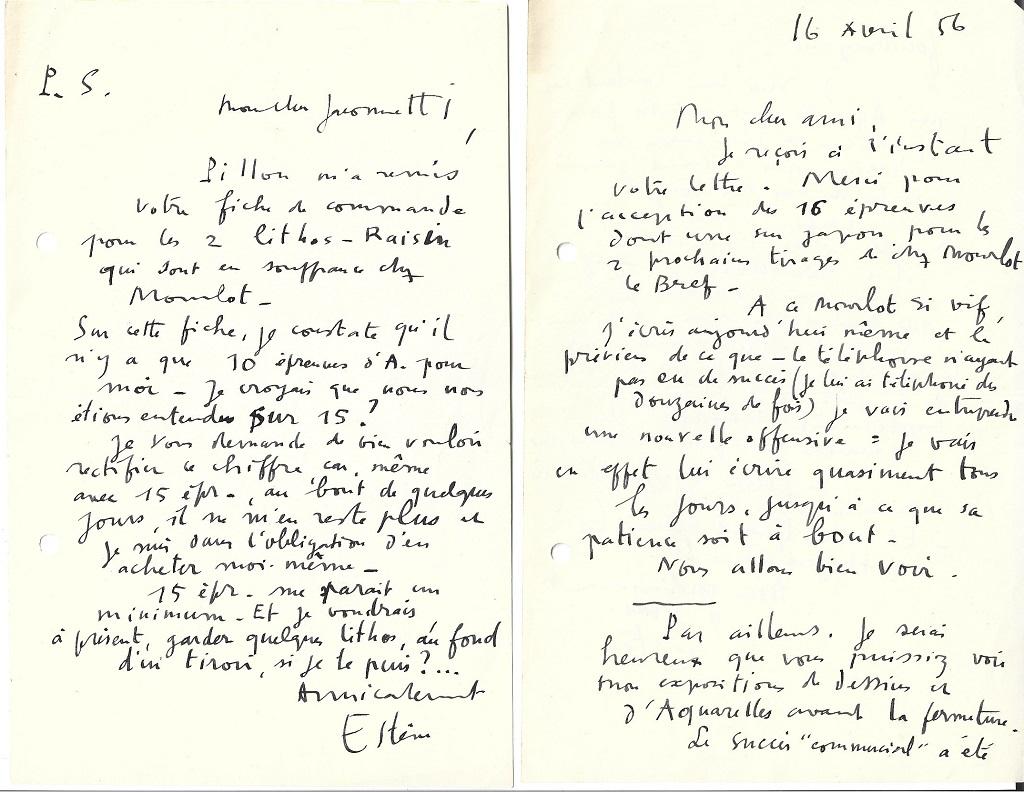 P. S.
Mon cher Jacometti,
Pillon m'a remis
votre fiche de commande
pour les 2 lithos - Raisin
qui sont en souffrance chez
Mourlot -
Sur cette fiche, je constate qu'il
n'y a que 10 épreuves d'A. pour
moi - Je croyais que nous nous
étions entendus sur 15 ?
Je vous demande de bien vouloir
rectifier ce chiffre car, même
avec 15 épr -, au bout de quelques
jours, il ne m'en reste plus et
je suis dans l'obligation d'en
acheter moi-même -
15 épr - me parait un
minimum - Et je voudrais
à présent, garder quelques lithos, au fond
d'un tiroir, si je le puis ?...
Amicalement
Estève
16 Avril 56
Mon cher ami,
Je reçois à l'instant
votre lettre. Merci pour
l'acception des 16 épreuves,
dont une sur japon pour les
2 prochains tirages de chez Mourlot
le Bref -
A ce Mourlot si vif,
j'écris aujourd'hui même et le
préviens de ce que - le téléphone n'ayant
pas eu de succès (je lui ai téléphoné des
douzaines de fois) je vais entreprendre
une nouvelle offensive = je vais
en effet lui écrire quasiment tous
les jours, jusqu'à ce que sa
patience soit à bout -
Nous allons bien voir.
Par ailleurs. Je serai
heureux que vous puissiez voir
mon expositions de dessins et
d'Aquarelles avant la fermeture.
Le succès "commercial" a été